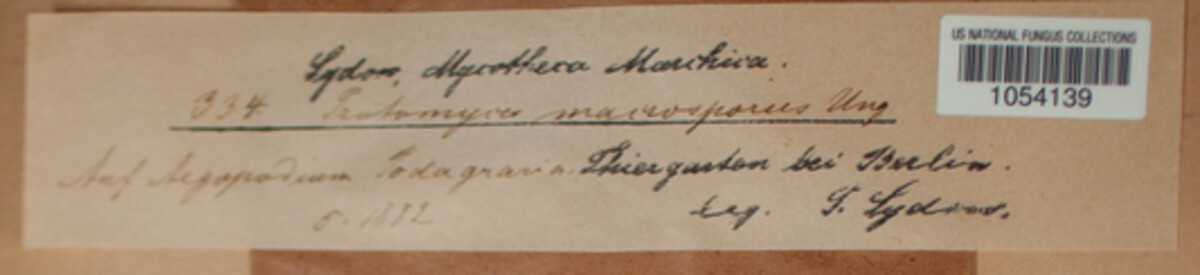 Sydow, Mycotheca Marchica.
334 Protomyces macrosporus Ung
Auf Aegopodium Podagraria. Thiergarten bei Berlin.
5. 1882 Leg. P. Sydow.
US NATIONAL FUNGUS COLLECTIONS
1054139